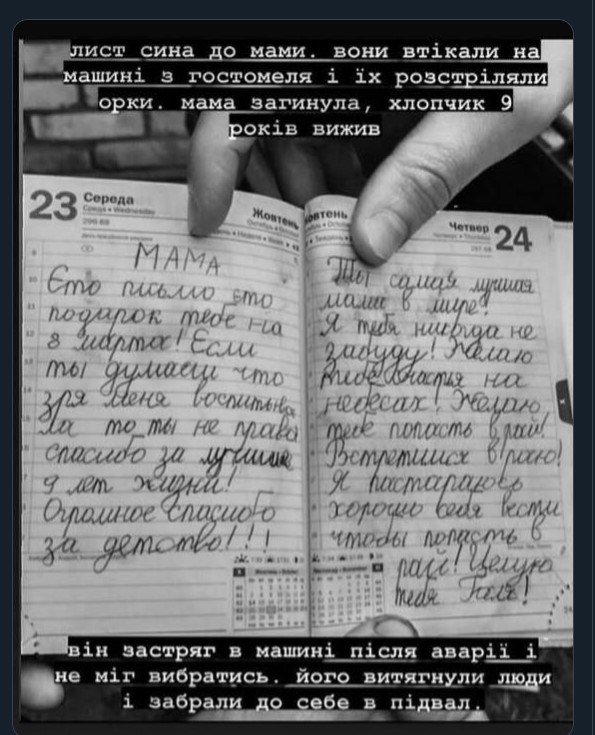 лист сина до мами. вони втікали на
машині з гостомеля і їх розстріляли
орки. мама загинула, хлопчик 9
років вижив
23 Середа
Среда • Wednesday
296-69
Жовтень
МАМА
Єто письмо єто
подарок тебе на
8 марта! Если
ты думаеш что
зря меня воспитыва
ла то ты не права
спасибо за лучшие
9 лет жизни!
Огромное спасибо
за детство!!!
Четвер 24
297-68
Ты самая лучшая
мама в мире!
Я тебя никогда не
забуду! Желаю
тебе счастья на
небесах! Желаю
тебе попасть в рай!
Встретимся в раю!
Я постараюсь
хорошо себя вести
чтобы попасть в
рай! Целую
тебя Галя!
він застряг в машині після аварії і
не міг вибратись. його витягнули люди
і забрали до себе в підвал.